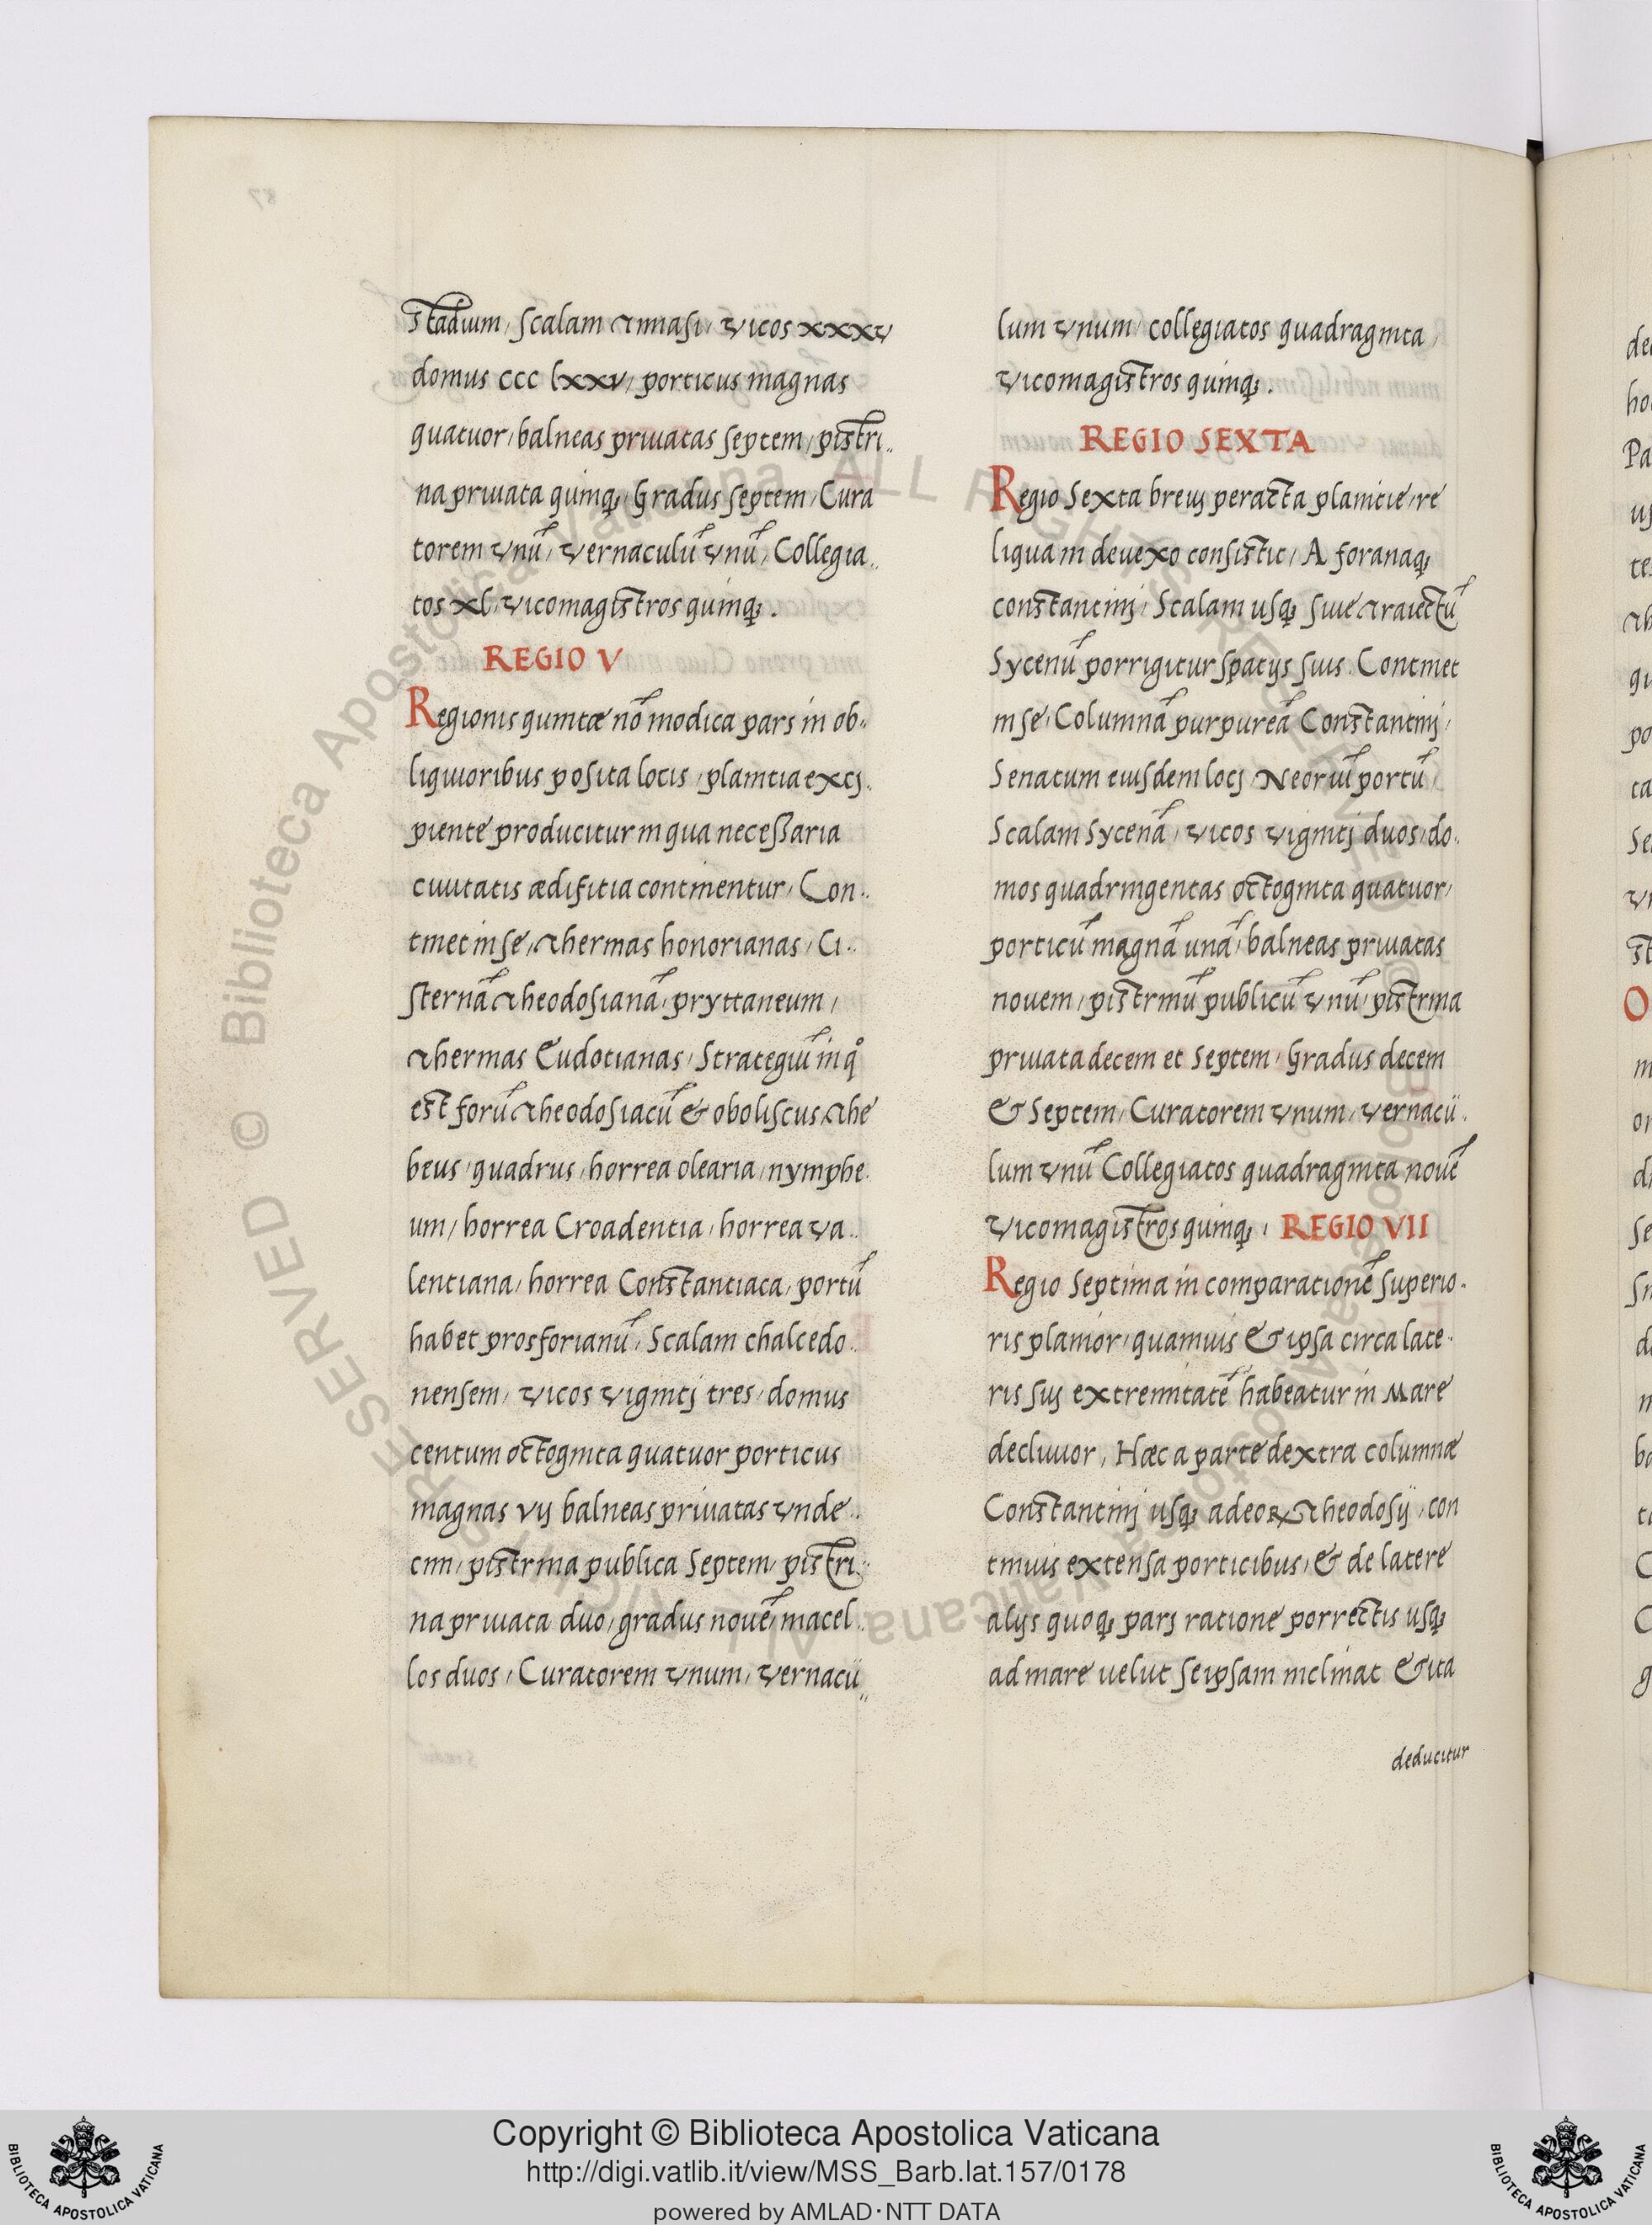 Stadium, Scalam timasi, vicos xxxv
domus ccc lxxv, porticus magnas
quatuor, balneas priuatas septem, pistri..
na priuata quinq;, Gradus septem, Cura
torem vnū, vernaculū vnū, Collegia..
tos xl, vicomagistros quinq;.
REGIO V
Regionis quintæ nō modica pars in ob..
liquioribus posita locis, planitia excj..
piente producitur in qua necessaria
ciuitatis ædifitia continentur, Con..
tinet in se, thermas honorianas, Ci..
sternā theodosianā, pryttaneum,
thermas Eudotianas, Strategiū in qͦ
est forū theodosiacū & oboliscus the
beus, quadrus, horrea olearia, nymphe.
um, horrea Croadentia, horrea va..
lentiana, horrea Constantiaca, portū
habet prosforianū, Scalam chalcedo..
nensem, vicos vigintj tres, domus
centum octoginta quatuor porticus
magnas vij balneas priuatas vnde..
cim, pistrina publica Septem, pistri..
na priuata duo, gradus nouē, macel..
los duos, Curatorem vnum, vernacu..
lum vnum, collegiatos quadraginta,
vicomagistros quinq;.
REGIO SEXTA
Regio Sexta breuj peracta planitie, re
liqua in deuexo consistit, A foranaq;
constantinj, Scalam usq; siue traiectū
Sycenū porrigitur spatijs suis. Continet
in se, Columnā purpureā Constantinj,
Senatum eiusdem locj, Neoriū portū,
Scalam Sycenā, vicos vigintj duos, do..
mos quadringentas octoginta quatuor,
porticū magnā unā, balneas priuatas
nouem, pistrinū publicū vnū, pistrina
priuata decem et Septem, Gradus decem
& Septem, Curatorem vnum, vernacu..
lum vnū Collegiatos quadraginta nouē
vicomagistros quinq;, REGIO VII
Regio Septima in comparationē superio..
ris planior, quamuis & ipsa circa late..
ris suj extremitatē habeatur in Mare
decliuior, Hæc a parte dextra columnæ
Constantinj usq; adeoꝝ theodosij, con
tinuis extensa porticibus, & de latere
alijs quoq; parj ratione porrectis usq;
ad mare uelut seipsam inclinat & ita
deducitur
Copyright © Biblioteca Apostolica Vaticana
http://digi.vatlib.it/view/MSS_Barb.lat.157/0178
powered by AMLAD·NTT DATA